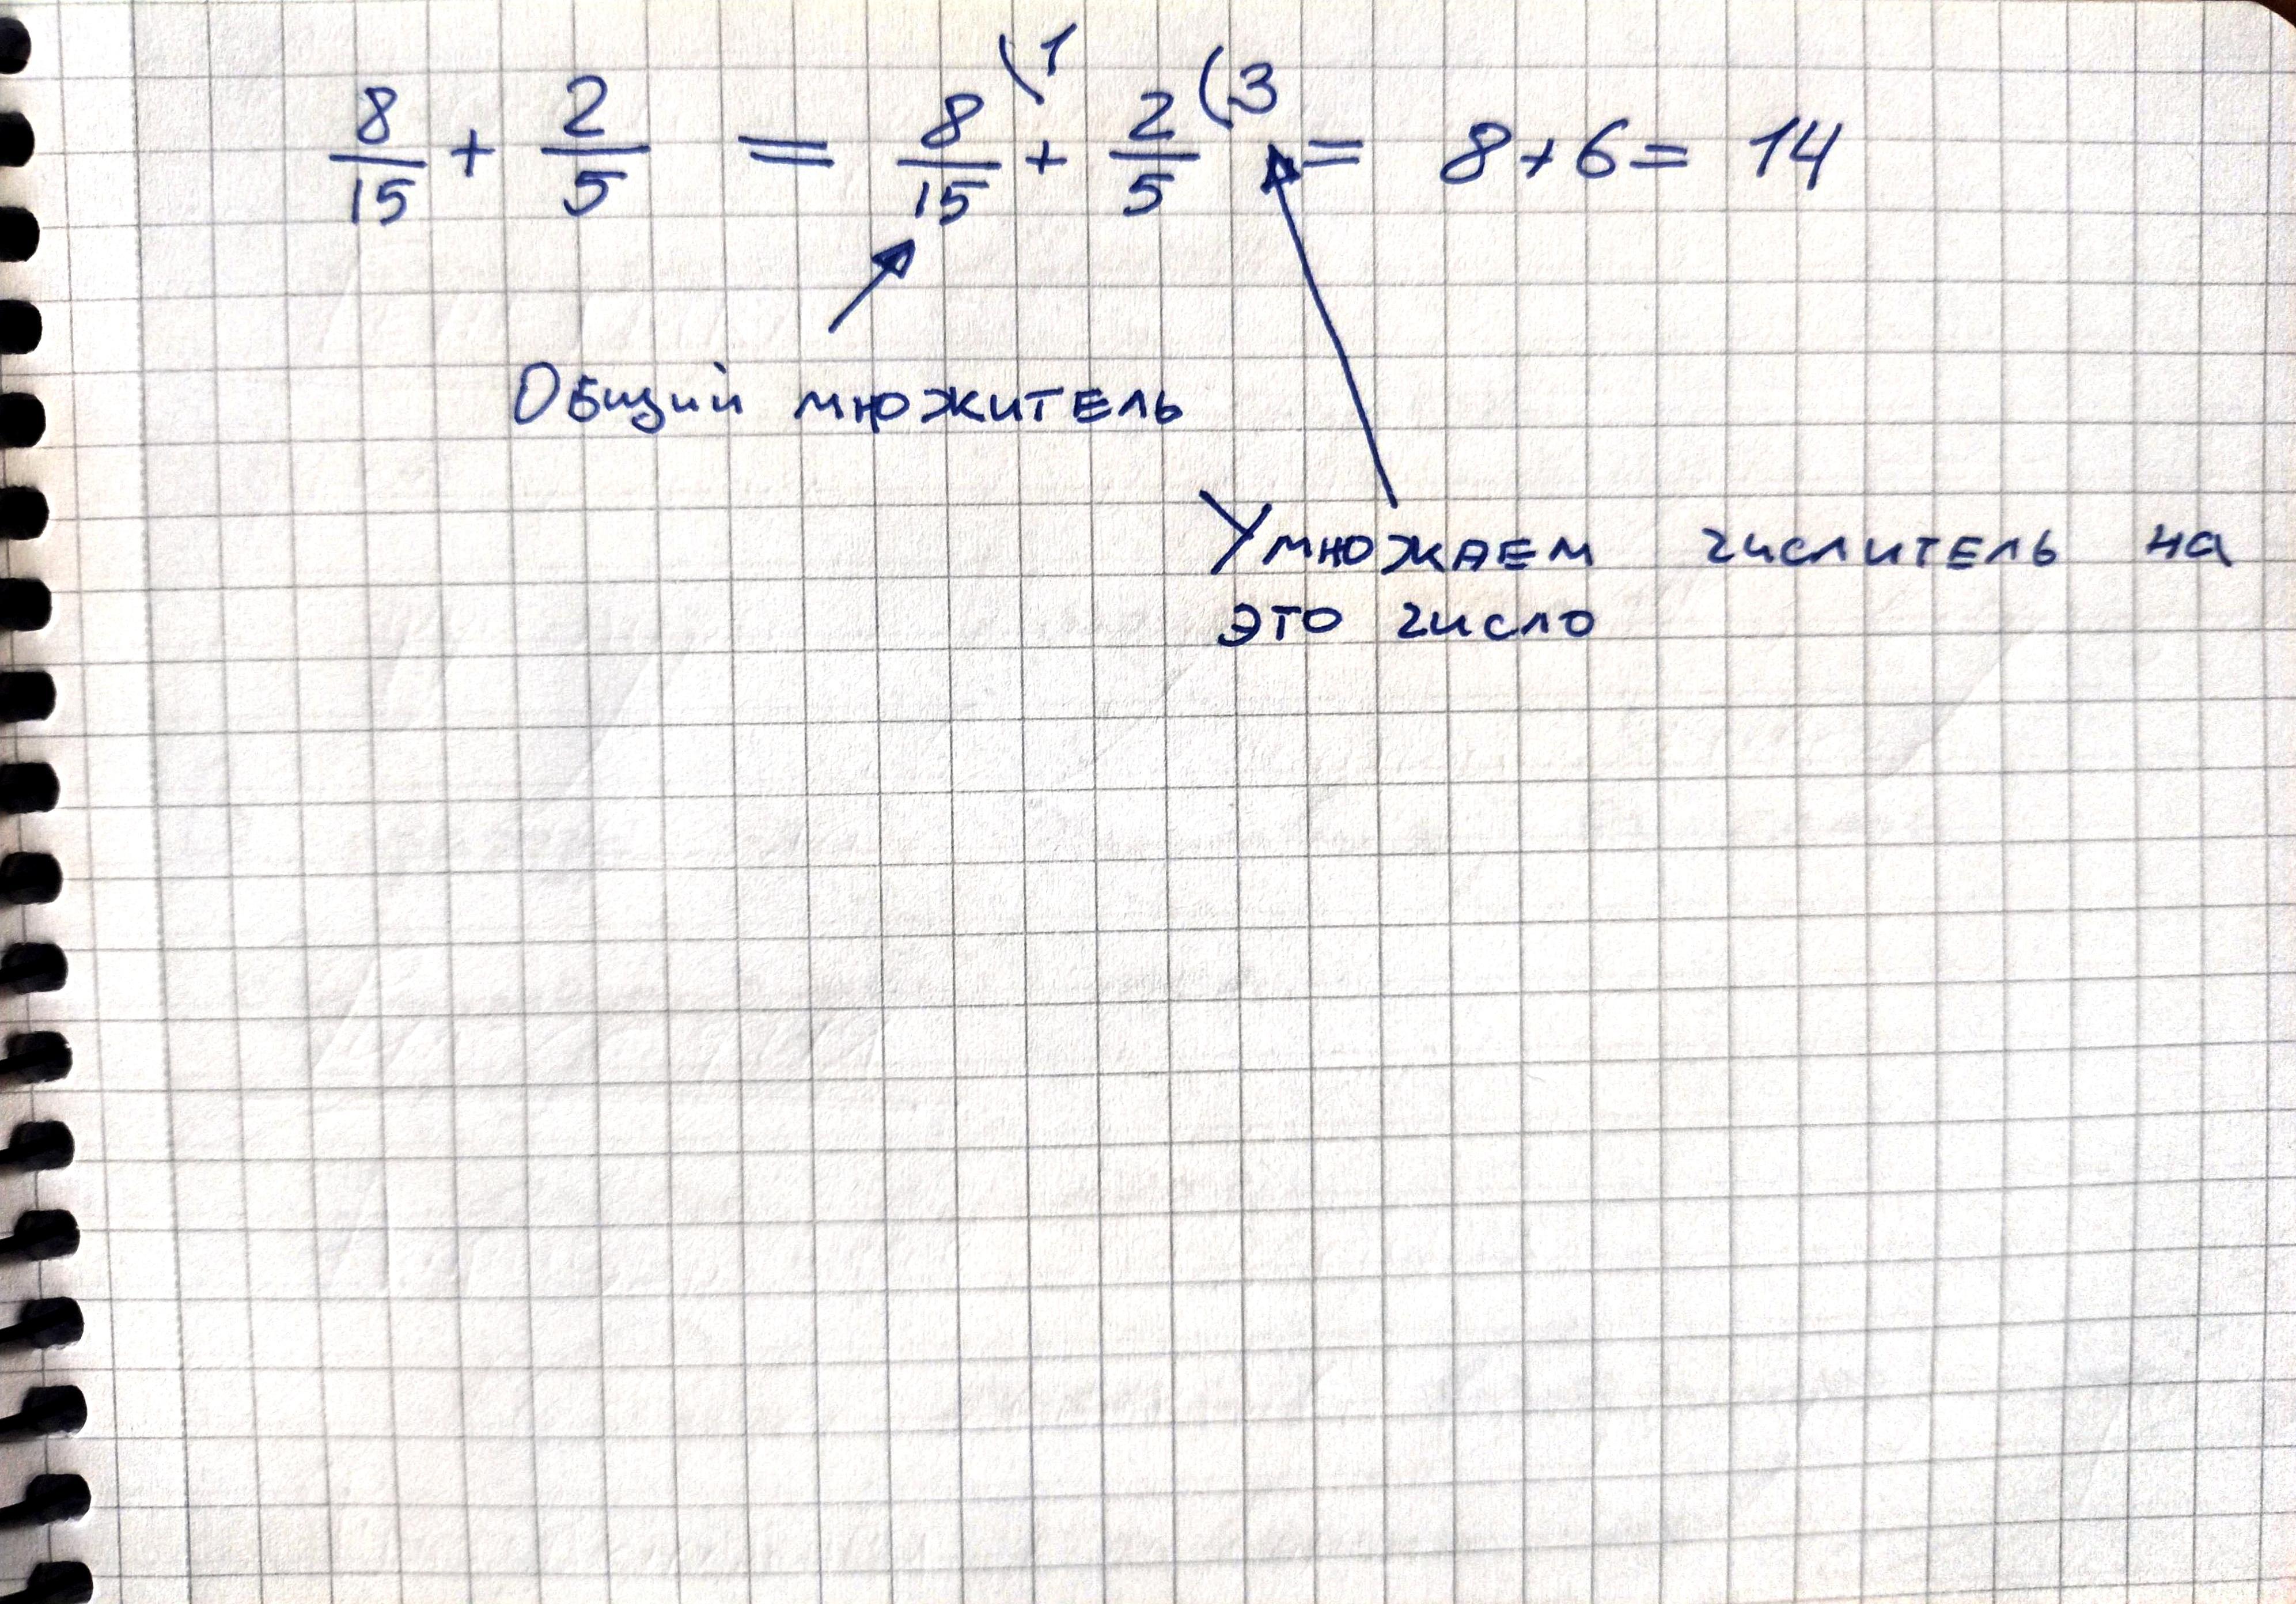 8/15 + 2/5 = 8/15 (1 + 2/5 (3 = 8+6= 14
Общий множитель
Умножаем числитель на
это число